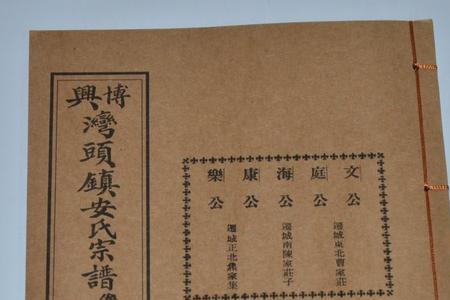 文公
庭公
海公
康公
樂公
遷城東北曹家莊
遷城南陳家莊子
遷城正北家集
博興
灣頭鎮安氏宗譜